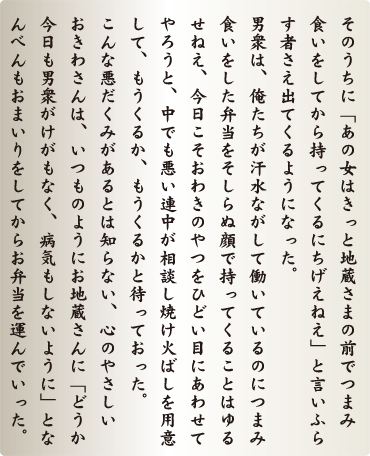 そのうちに「あの女はきっと地蔵さまの前でつまみ
食いをしてから持ってくるにちげえねえ」と言いふら
す者さえ出てくるようになった。
男衆は、俺たちが汗水ながして働いているのにつまみ
食いをした弁当をそしらぬ顔で持ってくることはゆる
せねえ、今日こそおわきのやつをひどい目にあわせて
やろうと、中でも悪い連中が相談し焼け火ばしを用意
して、もうくるか、もうくるかと待っておった。
こんな悪だくみがあるとは知らない、心のやさしい
おきわさんは、いつものようにお地蔵さんに「どうか
今日も男衆がけがもなく、病気もしないように」とな
んべんもおまいりをしてからお弁当を運んでいった。